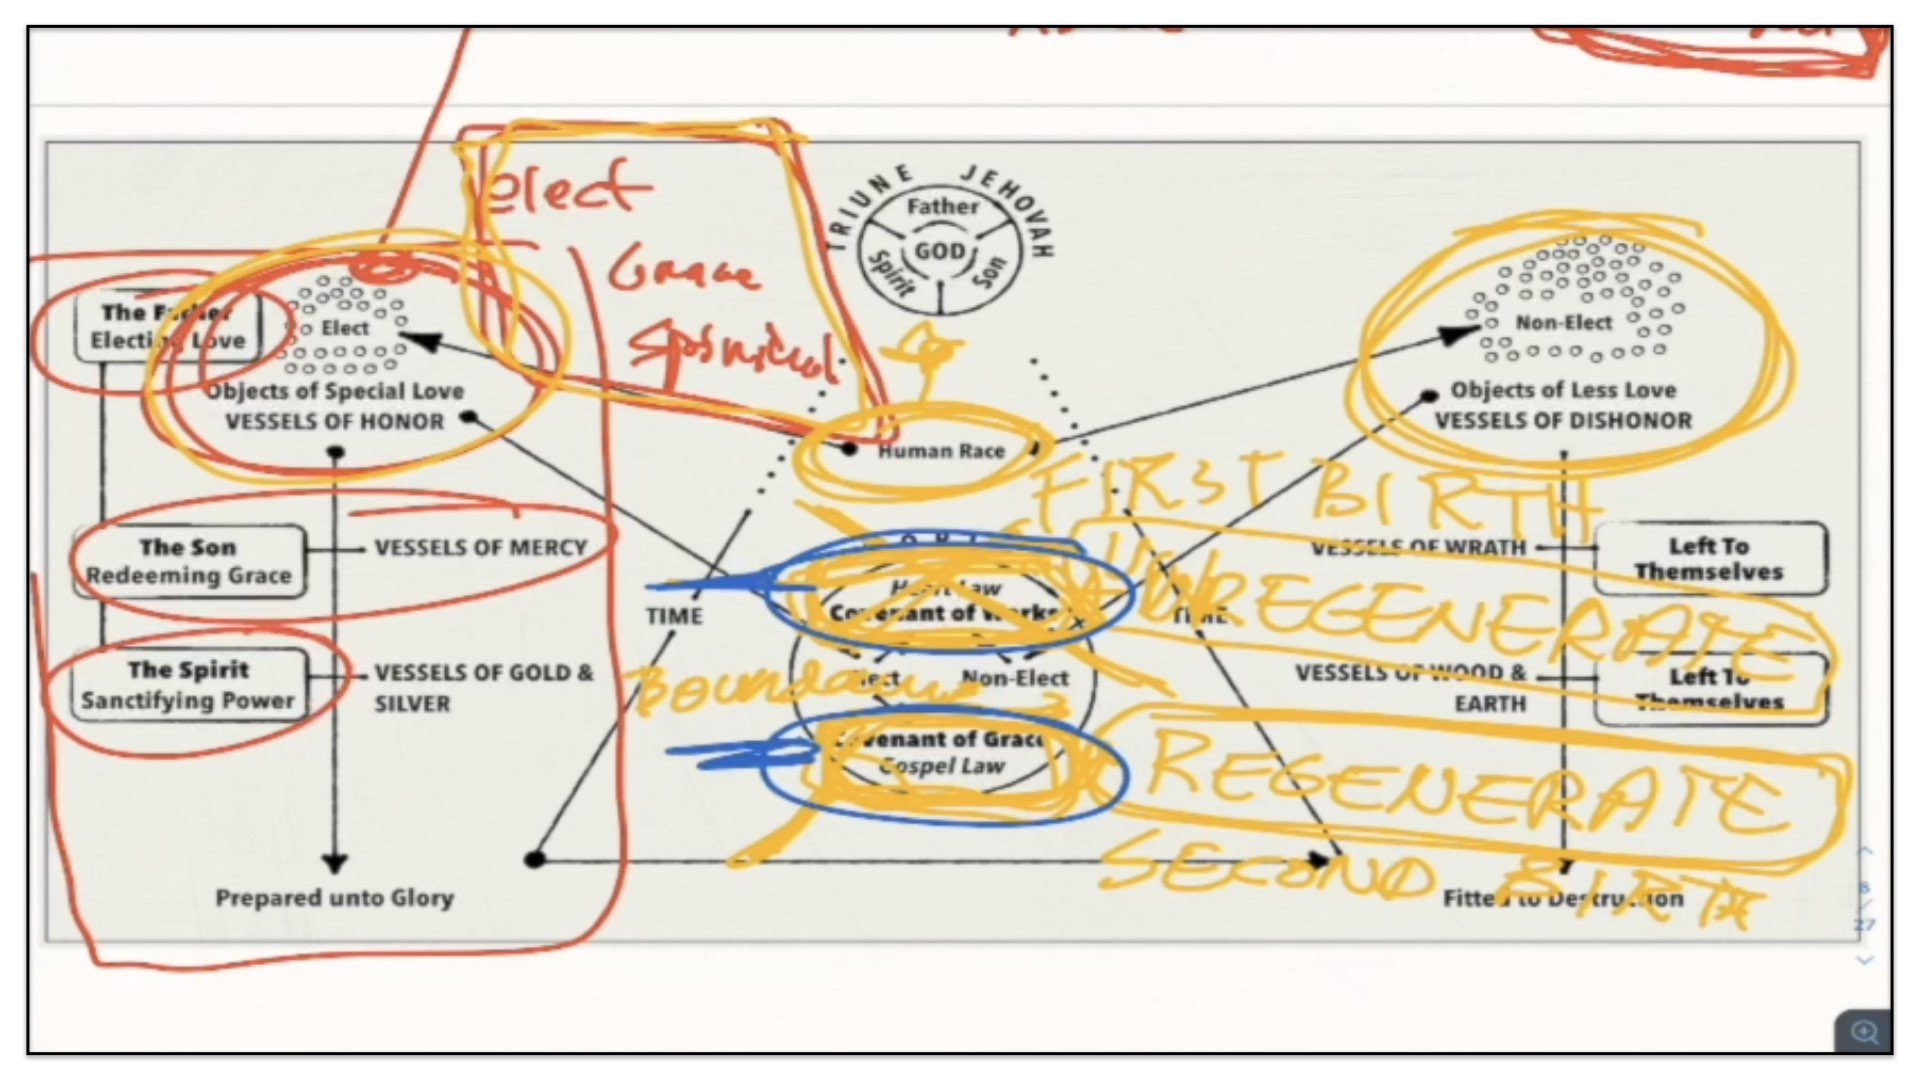 elect
Grace
Spiritual
TRIUNE JEHOVAH
Father
GOD
Spirit
Son
The Father
Electing Love
Elect
Objects of Special Love
VESSELS OF HONOR
Non-Elect
Objects of Less Love
VESSELS OF DISHONOR
Human Race
FIRST BIRTH
The Son
Redeeming Grace
VESSELS OF MERCY
VESSELS OF WRATH
Left To
Themselves
Heart Law
Covenant of Works
UNREGENERATE
TIME
TIME
The Spirit
Sanctifying Power
VESSELS OF GOLD &
SILVER
Elect
Non-Elect
VESSELS OF WOOD &
EARTH
Left To
Themselves
Covenant of Grace
Gospel Law
REGENERATE
SECOND BIRTH
Prepared unto Glory
Fitted to Destruction
8
/
27